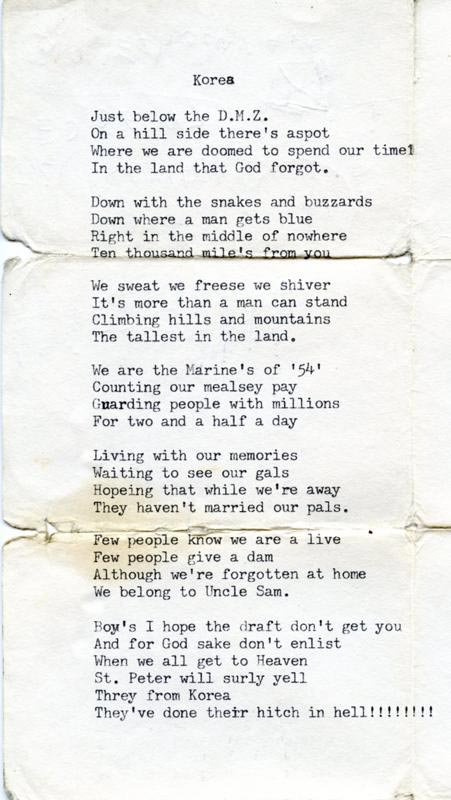 Korea
Just below the D.M.Z.
On a hill side there's aspot
Where we are doomed to spend our time!
In the land that God forgot.
Down with the snakes and buzzards
Down where a man gets blue
Right in the middle of nowhere
Ten thousand mile's from you
We sweat we freese we shiver
It's more than a man can stand
Climbing hills and mountains
The tallest in the land.
We are the Marine's of '54'
Counting our mealsey pay
Guarding people with millions
For two and a half a day
Living with our memories
Waiting to see our gals
Hopeing that while we're away
They haven't married our pals.
Few people know we are a live
Few people give a dam
Although we're forgotten at home
We belong to Uncle Sam.
Boy's I hope the draft don't get you
And for God sake don't enlist
When we all get to Heaven
St. Peter will surly yell
Threy from Korea
They've done their hitch in hell!!!!!!!!